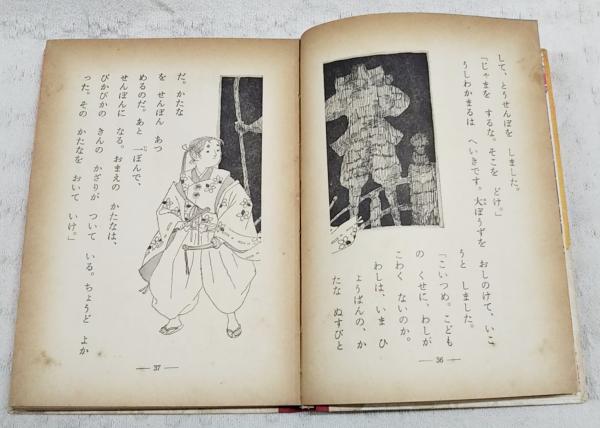 して、とうせんぼを しました。
「じゃまを するな。そこを どけ。」
うしわかまるは へいきです。大ぼうずを おしのけて、いこ
うと しました。
「こいつめ。こども
の くせに、わしが
こわく ないのか。
わしは、いま ひ
ょうばんの、か
たな ぬすびと
36
だ。かたな
を せんぼん あつ
めるのだ。あと 一ぽんで、
せんぼんに なる。おまえの かたなは、
ぴかぴかの きんの かざりが ついて いる。ちょうど よか
った。その かたなを おいて いけ。」
37